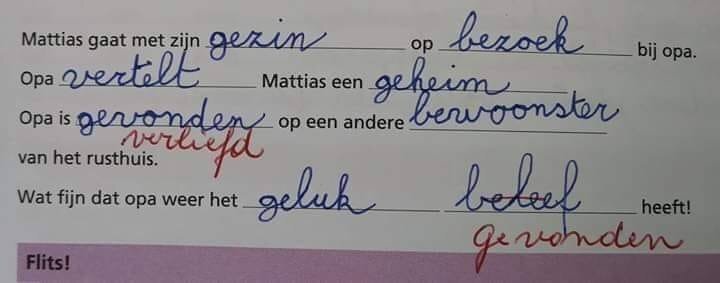 Mattias gaat met zijn gezin op bezoek bij opa.
Opa vertelt Mattias een geheim
Opa is gevonden op een andere bewoonster
verliefd
van het rusthuis.
Wat fijn dat opa weer het geluk beleef heeft!
gevonden
Flits!